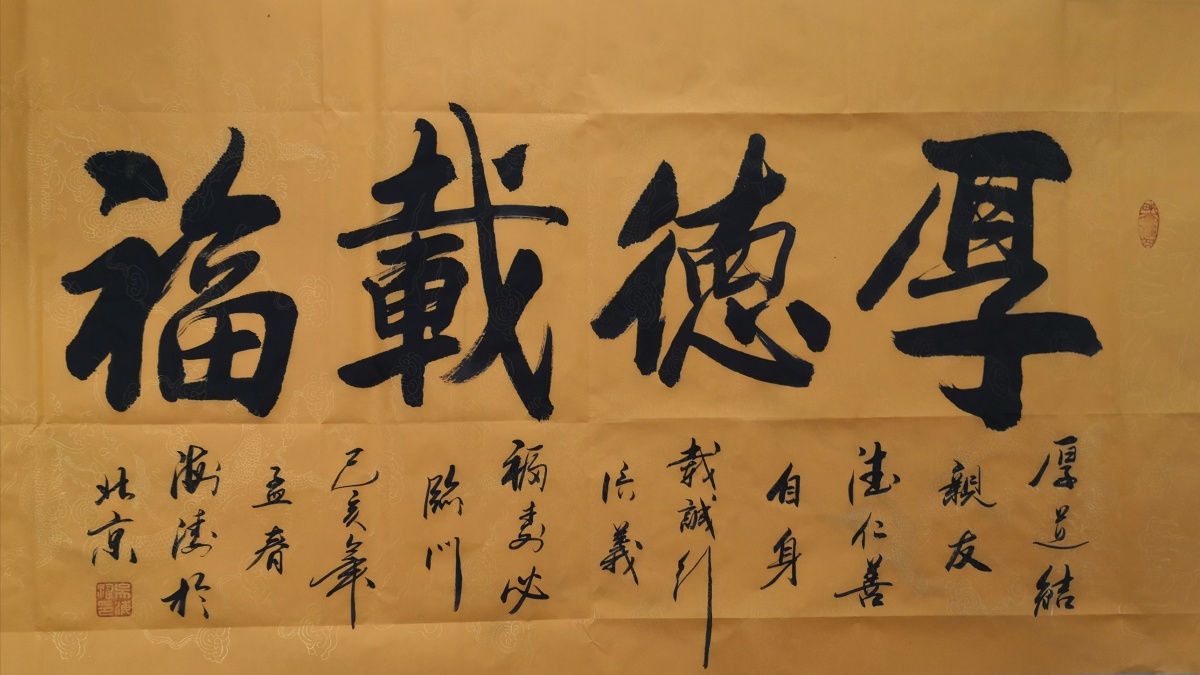 厚德載福
厚道結
親友
德仁善
自身
載誠行
信義
福壽必
臨門
己亥年
孟春
海濤於
北京